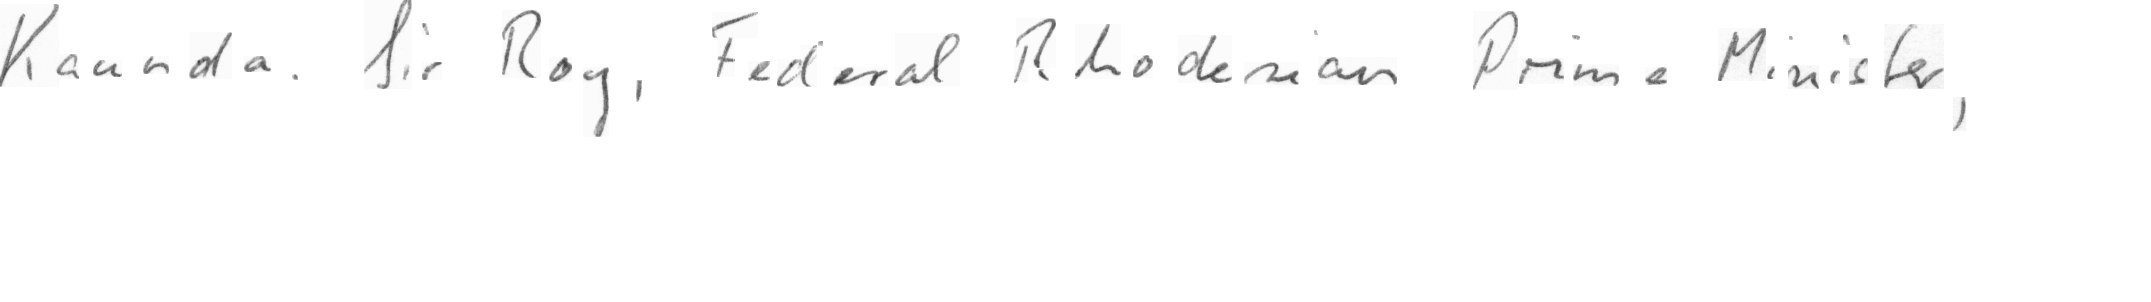 Kaunda. Sir Roy, Federal Rhodesian Prime Minister,